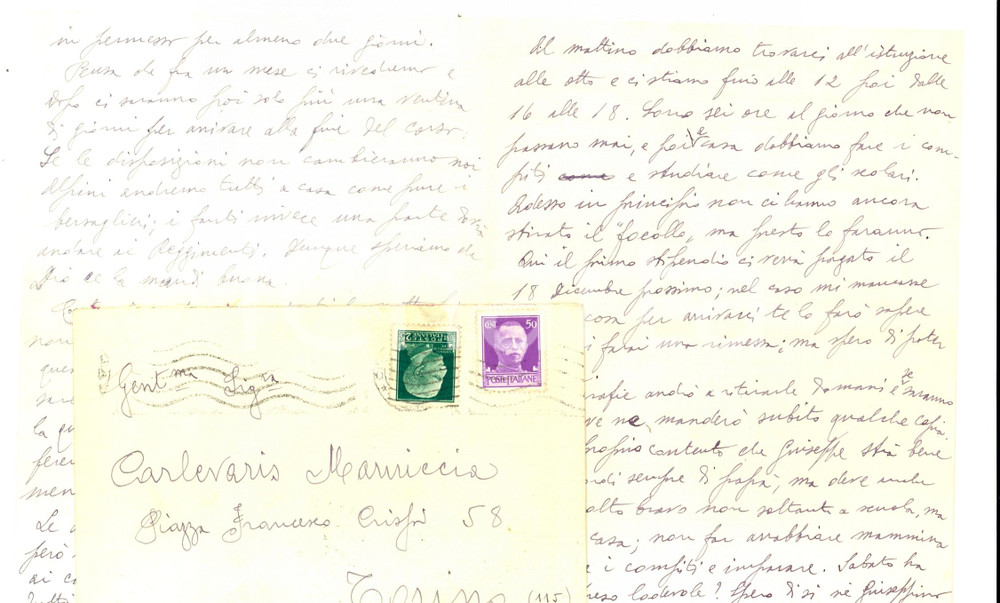 in permesso per almeno due giorni.
Pensa che fra un mese ci rivedremo e
dopo ci saranno poi solo più una ventina
di giorni per arrivare alla fine del corso.
Se le disposizioni non cambieranno noi
Alpini andremo tutti a casa come pure i
bersaglieri; i fanti invece una parte
andare ai Reggimenti. Dunque speriamo che
Dio ce la mandi buona.
non
ques
sare
la qu
feren
men
Le
però
ai c
Al mattino dobbiamo trovarci all'istruzione
alle otto e ci stiamo fino alle 12 poi dalle
16 alle 18. Sono sei ore al giorno che non
passano mai, e poi a casa dobbiamo fare i com-
piti come e studiare come gli scolari.
Adesso in principio non ci hanno ancora
stirato il "focollo", ma presto lo faranno.
Qui il primo stipendio ci verrà pagato il
18 dicembre prossimo; nel caso mi mancasse
cosa per arrivarci te lo farò sapere
i farai una rimessa; ma spero di poter
rafie andrò a ritirarle domani e se saranno
ve ne manderò subito qualche copia.
proprio contento che Giuseppe stia bene
ordi sempre di papà, ma deve anche
olto bravo non soltanto a scuola, ma
casa; non far arrabbiare mammina
e i compiti e imparare. Sabato ha
reso lodevole? Spero di sì né Giuseppino
Gent.ma Sig.ra
Carlevaris Mariuccia
Piazza Francesco Crispi 58
Torino (115)
CENT. 50
POSTE ITALIANE